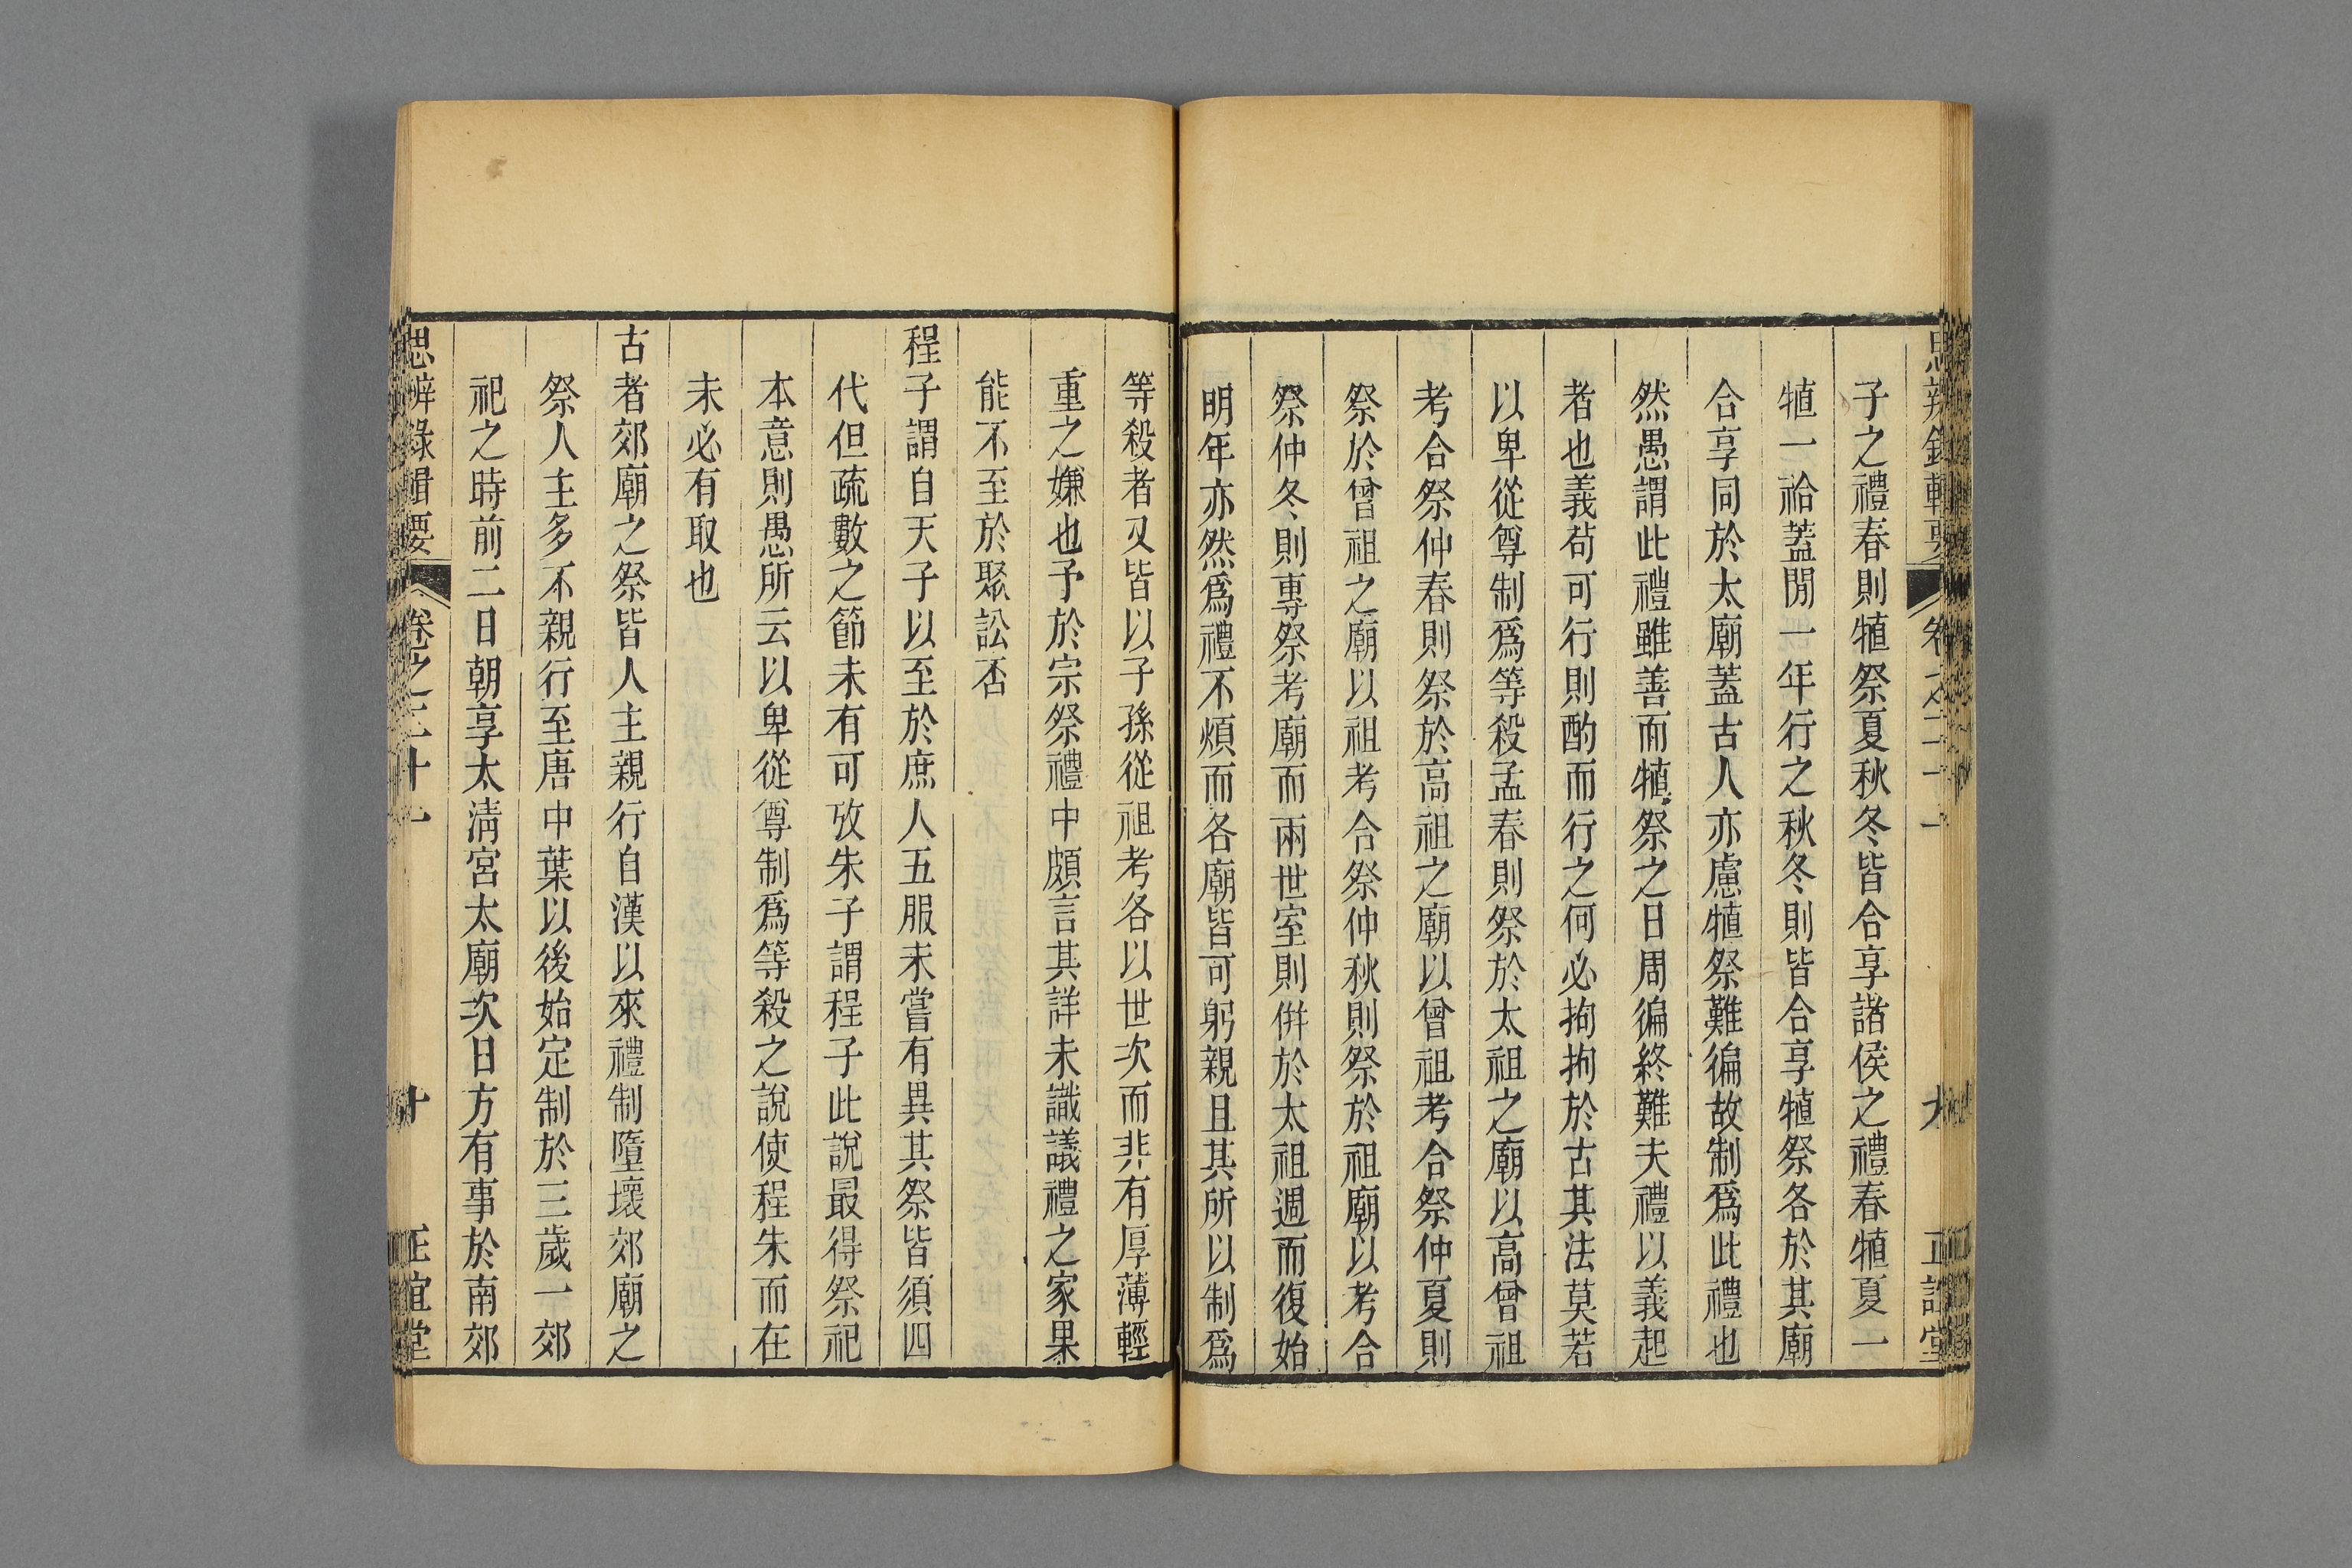 思辨錄輯要 卷之二十一 九 正誼堂
子之禮春則犆祭夏秋冬皆合享諸侯之禮春犆夏一
犆一祫蓋閒一年行之秋冬則皆合享犆祭各於其廟
合享同於太廟蓋古人亦慮犆祭難徧故制爲此禮也
然愚謂此禮雖善而犆祭之日周徧終難夫禮以義起
者也義茍可行則酌而行之何必拘拘於古其法莫若
以卑從尊制爲等殺孟春則祭於太祖之廟以高曾祖
考合祭仲春則祭於高祖之廟以曾祖考合祭仲夏則
祭於曾祖之廟以祖考合祭仲秋則祭於祖廟以考合
祭仲冬則專祭考廟而兩世室則併於太祖週而復始
明年亦然爲禮不煩而各廟皆可躬親且其所以制爲
等殺者又皆以子孫從祖考各以世次而非有厚薄輕
重之嫌也予於宗祭禮中頗言其詳未識議禮之家果
能不至於聚訟否
程子謂自天子以至於庶人五服未嘗有異其祭皆須四
代但疏數之節未有可攷朱子謂程子此說最得祭祀
本意則愚所云以卑從尊制爲等殺之說使程朱而在
未必有取也
古者郊廟之祭皆人主親行自漢以來禮制墮壞郊廟之
祭人主多不親行至唐中葉以後始定制於三歲一郊
祀之時前二日朝享太淸宮太廟次日方有事於南郊
思辨錄輯要 卷之二十一 十 正誼堂